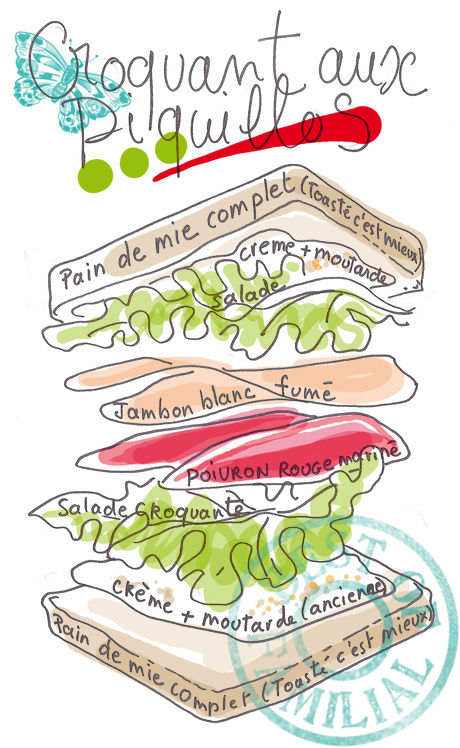 Croquant aux
piquillos
Pain de mie complet (Toasté c'est mieux)
crème + moutarde
salade
Jambon blanc fumé
POIVRON ROUGE mariné
Salade CROQUANTE
crème + moutarde (ancienne)
Pain de mie complet (Toasté c'est mieux)
EST
FAMILIAL